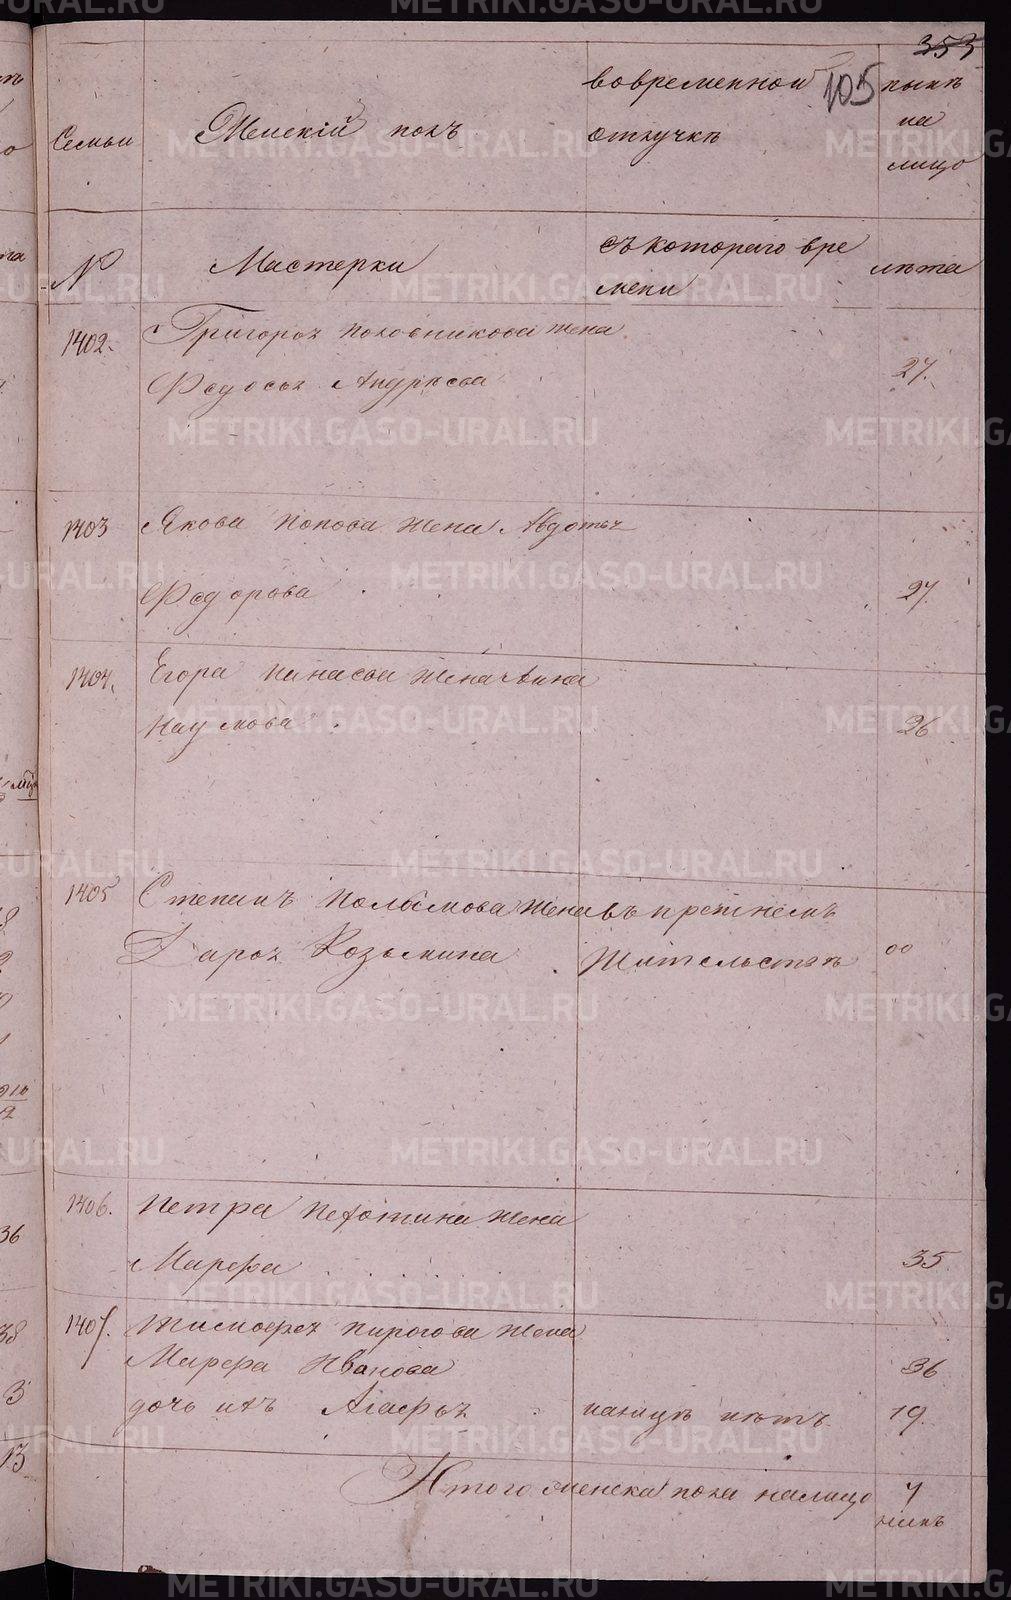 353
105
Семьи
Женскій полъ
вовременной
отлучкѣ
нынѣ
на
лицо
№
Мастерки
съ котораго вре
мени
лѣта
1402.
Григорья половникова жена
Федосья Андреева
27.
1403
Якова попова жена Авдотья
Федорова
27.
1404.
Егора жена
Наумова
26
1405
Степанъ жена въ прежнемъ
Дарья Козьмина жительствѣ
00
1406.
Петра жена
Марефа
35.
1407.
Тимофея пирогова жена
Марефа Иванова
36
дочь ихъ Агафья налицѣ нѣтъ
19.
Итого женска пола налицо
7
METRIKI.GASO-URAL.RU